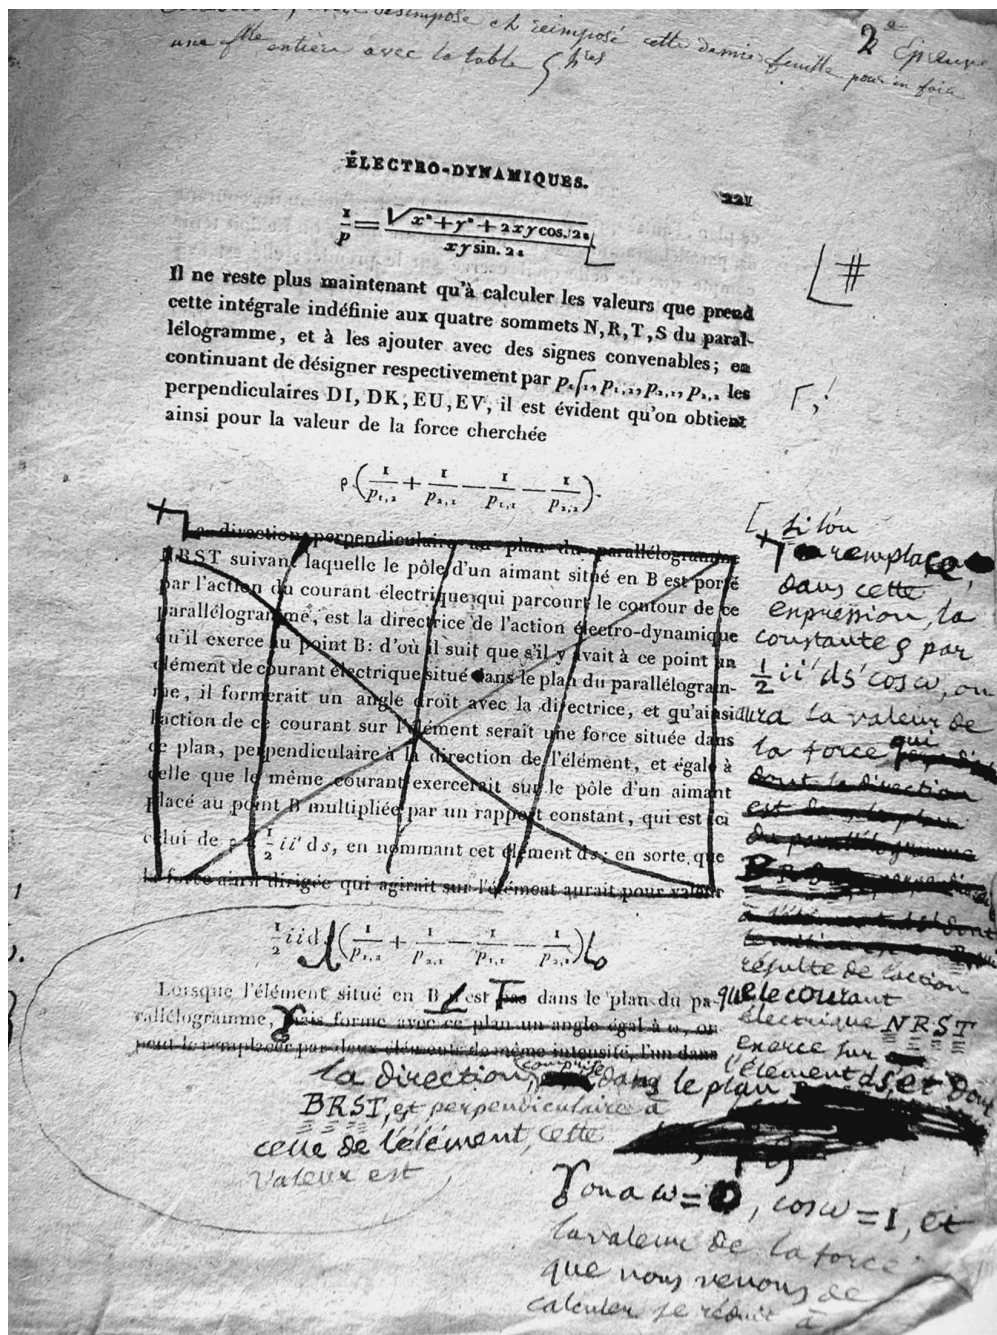 desimposé et réimposé cette demie feuille pour en faire
une flle entière avec la table
2e Epreuve
ÉLECTRO-DYNAMIQUES. 221
1/p = √x²+y²+2xycos.2ε / xysin.2ε
Il ne reste plus maintenant qu'à calculer les valeurs que prend
cette intégrale indéfinie aux quatre sommets N,R,T,S du paral-
lélogramme, et à les ajouter avec des signes convenables; en
continuant de désigner respectivement par p₂,₁, p₁,₂, p₂,₁, p₂,₂ les
perpendiculaires DI, DK, EU, EV, il est évident qu'on obtient
ainsi pour la valeur de la force cherchée
ρ(1/p₁,₂ + 1/p₂,₁ — 1/p₁,₁ — 1/p₂,₂).
La direction perpendiculaire au plan du parallélogramme
NRST suivant laquelle le pôle d'un aimant situé en B est porté
par l'action du courant électrique qui parcourt le contour de ce
parallélogramme, est la directrice de l'action électro-dynamique
qu'il exerce au point B: d'où il suit que s'il y avait à ce point un
élément de courant électrique situé dans le plan du parallélogram-
me, il formerait un angle droit avec la directrice, et qu'ainsi
l'action de ce courant sur l'élément serait une force située dans
ce plan, perpendiculaire à la direction de l'élément, et égale à
celle que le même courant exercerait sur le pôle d'un aimant
placé au point B multipliée par un rapport constant, qui est ici
celui de ρ à ½ii'ds, en nommant cet élément ds; en sorte que
la force ainsi dirigée qui agirait sur l'élément aurait pour valeur
½iids(1/p₁,₂ + 1/p₂,₁ — 1/p₁,₁ — 1/p₂,₂)
Lorsque l'élément situé en B n'est pas dans le plan du pa-
rallélogramme, mais forme avec ce plan un angle égal à ω, on
peut le remplacer par deux élémens de même intensité, l'un dans
si l'on
remplace
dans cette
expression, la
constante ρ par
½ii'ds'cosω, on
aura la valeur de
la force qui
dont la direction
est dans le plan
du parallélogramme
résulte de l'action
que le courant
électrique NRST
exerce sur
l'élément ds', et dont
la direction, comprise dans le plan
BRST, est perpendiculaire à
celle de l'élément, cette
valeur est
on a ω=0, cosω=1, et
la valeur de la force
que nous venons de
calculer se réduit à